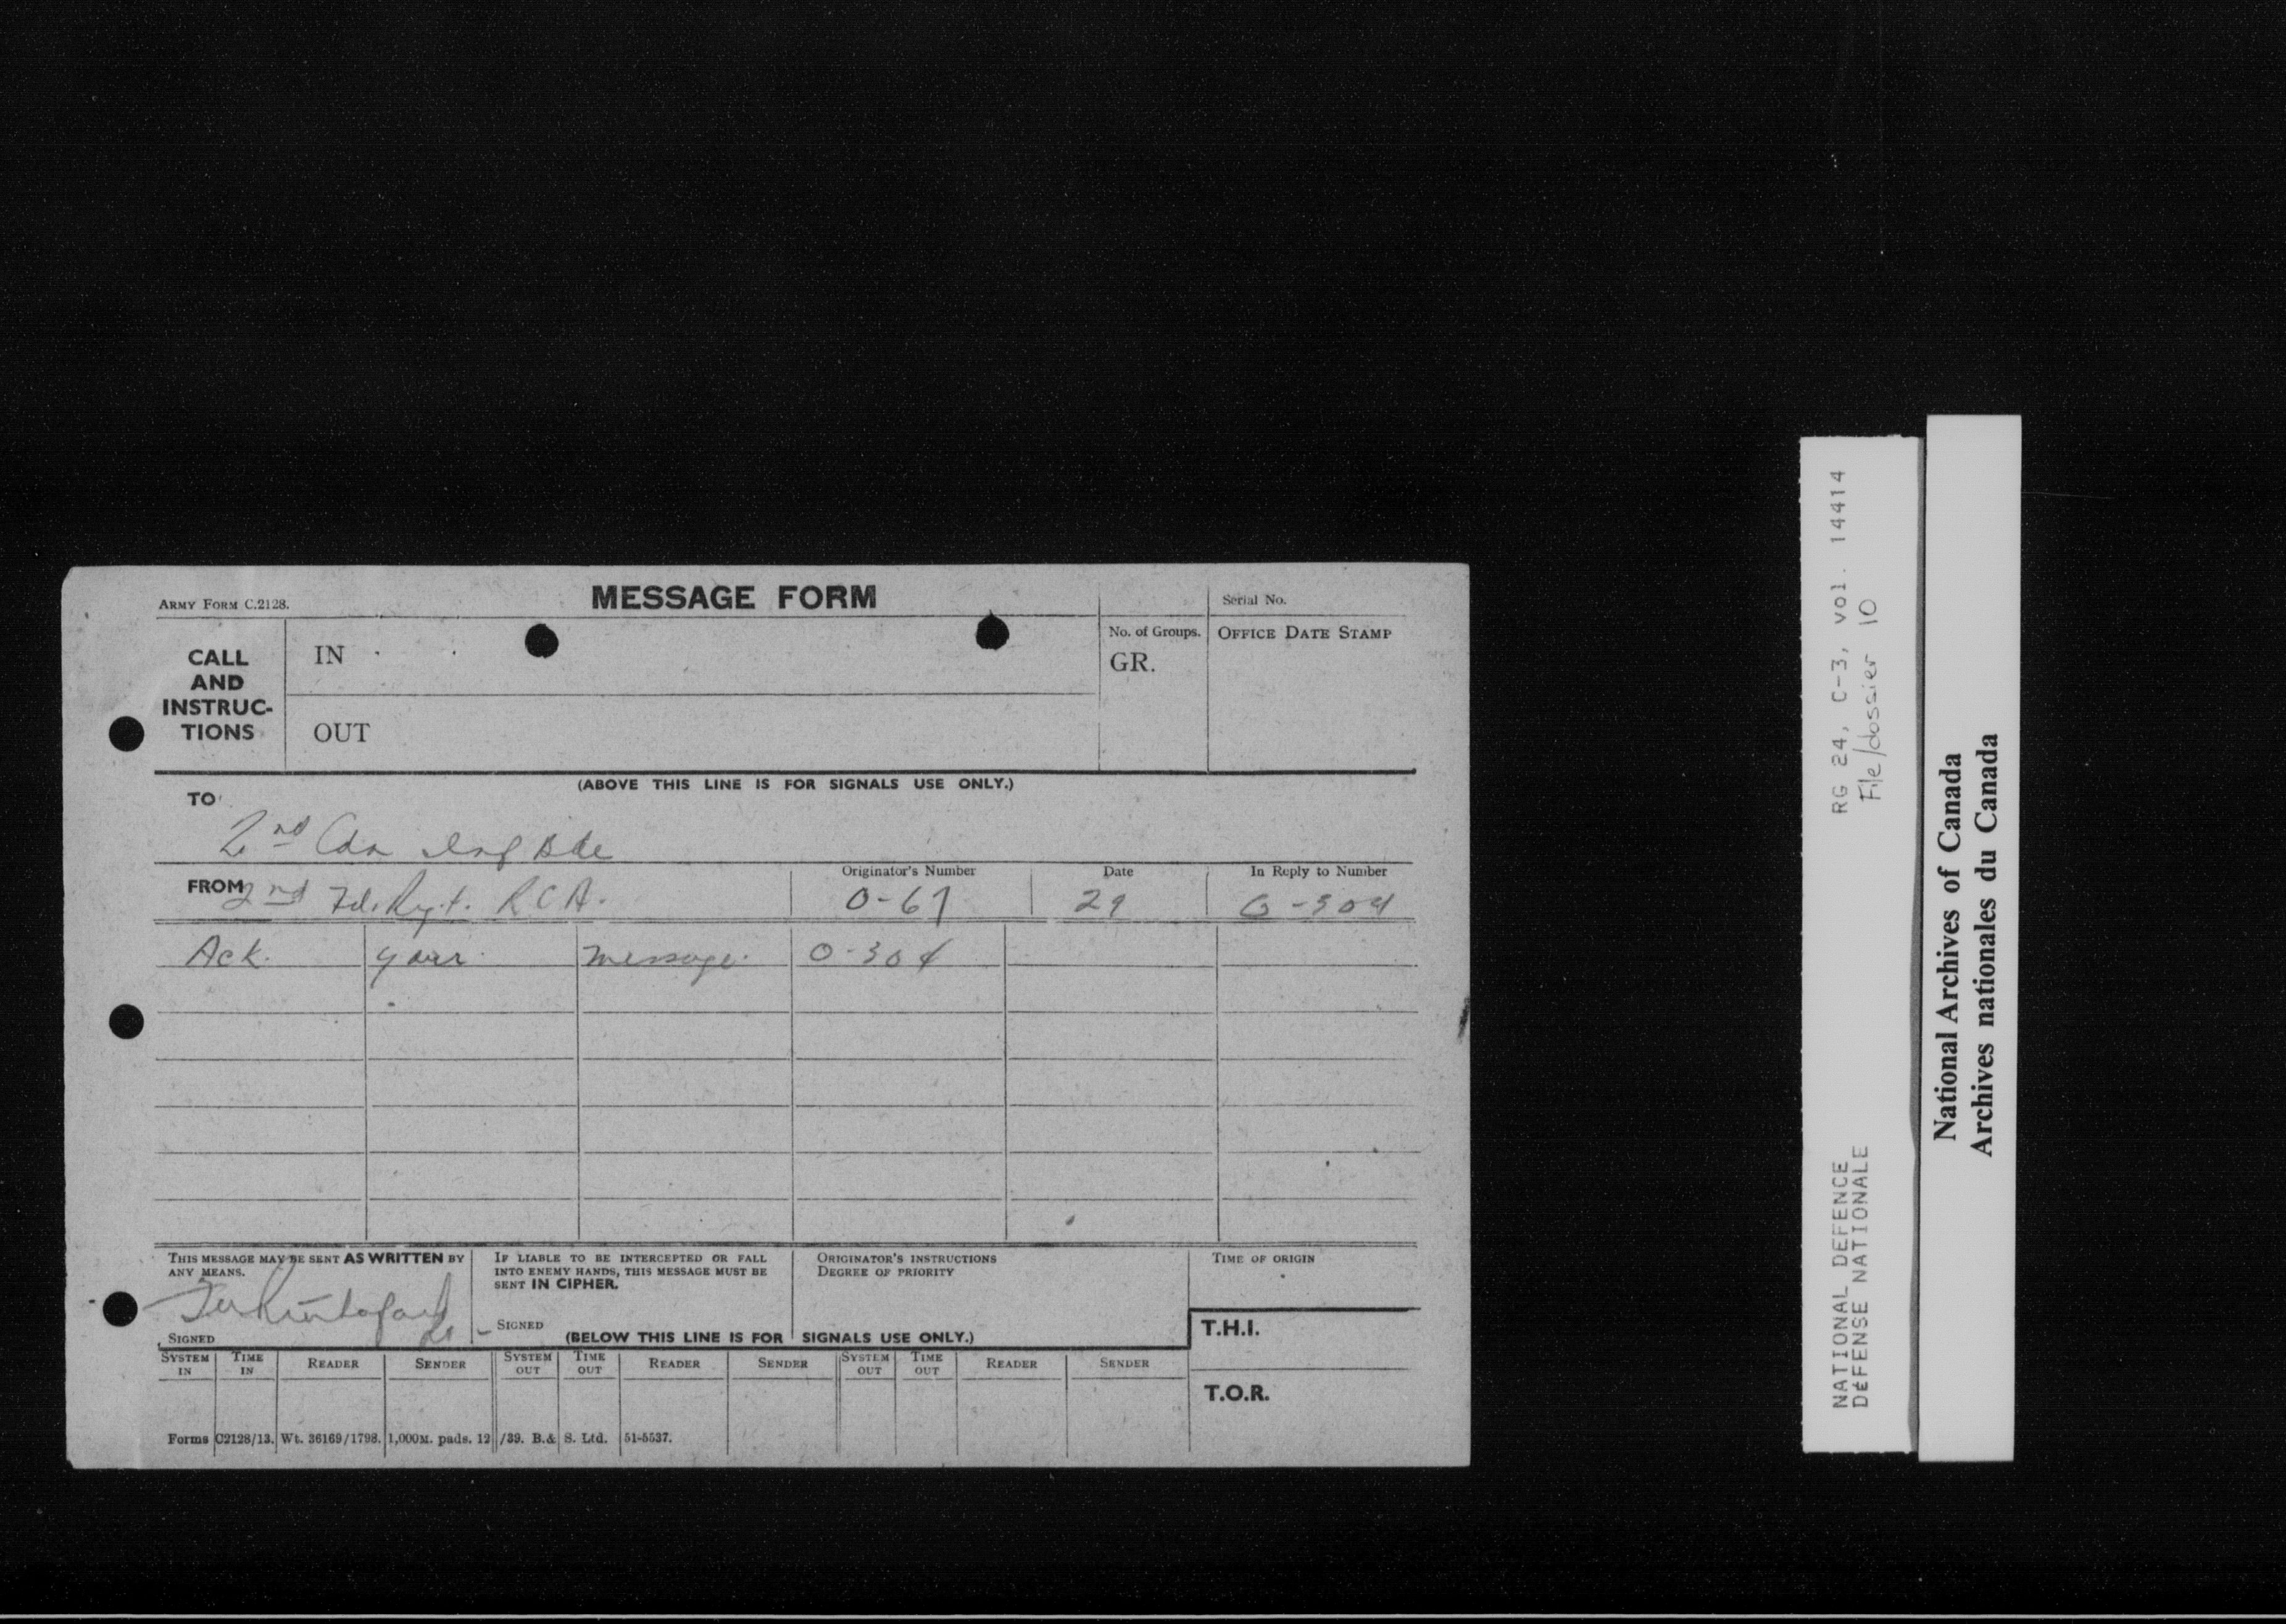 ARMY FORM C.2128.
MESSAGE FORM
Serial No.
CALL AND INSTRUC-TIONS
IN
OUT
No. of Groups.
GR.
OFFICE DATE STAMP
(ABOVE THIS LINE IS FOR SIGNALS USE ONLY.)
TO
2nd Cdn Inf Bde
FROM 2nd Fd. Regt. R C A.
Originator's Number
0-67
Date
29
In Reply to Number
G-304
Ack. your message. 0-304
THIS MESSAGE MAY BE SENT AS WRITTEN BY
ANY MEANS.
SIGNED
IF LIABLE TO BE INTERCEPTED OR FALL
INTO ENEMY HANDS, THIS MESSAGE MUST BE
SENT IN CIPHER.
SIGNED
ORIGINATOR'S INSTRUCTIONS
DEGREE OF PRIORITY
TIME OF ORIGIN
(BELOW THIS LINE IS FOR SIGNALS USE ONLY.)
T.H.I.
T.O.R.
SYSTEM IN TIME IN READER SENDER SYSTEM OUT TIME OUT READER SENDER SYSTEM OUT TIME OUT READER SENDER
Forms C2128/13. Wt. 36169/1798. 1,000M. pads. 12/39. B.& S. Ltd. 51-5537.
RG 24, C-3, vol. 14414
File/dossier 10
NATIONAL DEFENCE
DÉFENSE NATIONALE
National Archives of Canada
Archives nationales du Canada